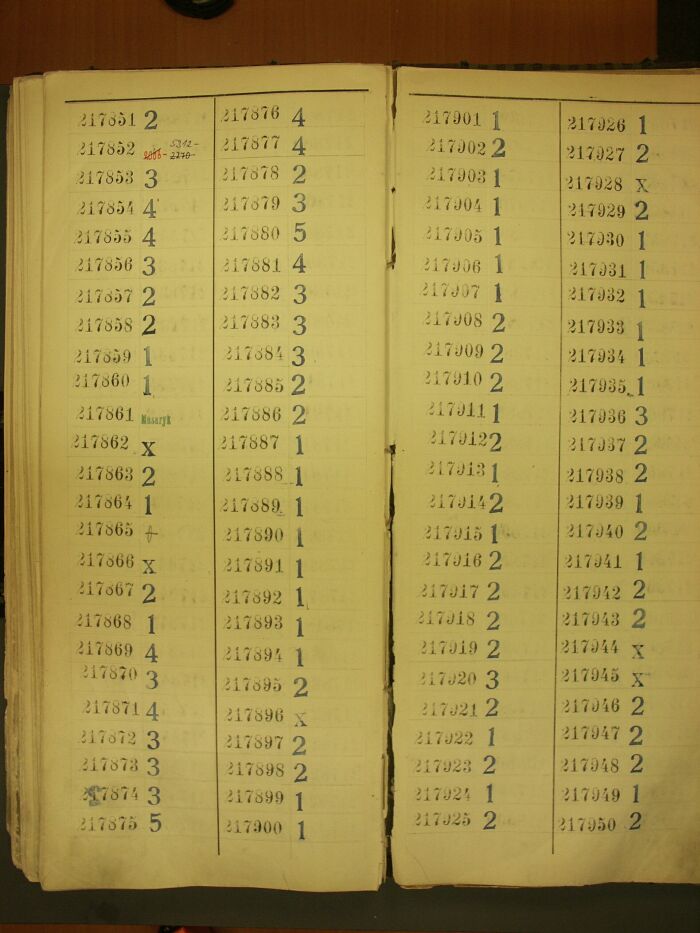 217851 2
217852 5312-
2770-
217853 3
217854 4
217855 4
217856 3
217857 2
217858 2
217859 1
217860 1
217861 Masaryk
217862 x
217863 2
217864 1
217865 +
217866 x
217867 2
217868 1
217869 4
217870 3
217871 4
217872 3
217873 3
217874 3
217875 5
217876 4
217877 4
217878 2
217879 3
217880 5
217881 4
217882 3
217883 3
217884 3
217885 2
217886 2
217887 1
217888 1
217889 1
217890 1
217891 1
217892 1
217893 1
217894 1
217895 2
217896 x
217897 2
217898 2
217899 1
217900 1
217901 1
217902 2
217903 1
217904 1
217905 1
217906 1
217907 1
217908 2
217909 2
217910 2
217911 1
217912 2
217913 1
217914 2
217915 1
217916 2
217917 2
217918 2
217919 2
217920 3
217921 2
217922 1
217923 2
217924 1
217925 2
217926 1
217927 2
217928 x
217929 2
217930 1
217931 1
217932 1
217933 1
217934 1
217935 1
217936 3
217937 2
217938 2
217939 1
217940 2
217941 1
217942 2
217943 2
217944 x
217945 x
217946 2
217947 2
217948 2
217949 1
217950 2